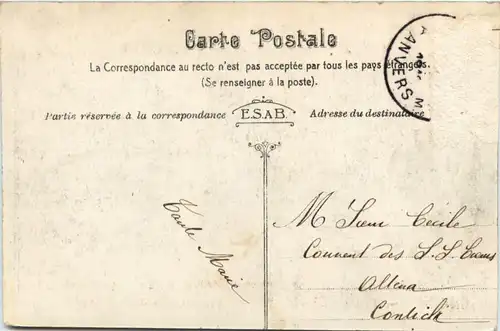 Carte Postale
La Correspondance au recto n'est pas acceptée par tous les pays étrangers.
(Se renseigner à la poste).
ANVERS
Partie réservée à la correspondance
E.S.A.B.
Adresse du destinataire
Tante Marie
M Sœur Cécile
Couvent des S.S.
Contich